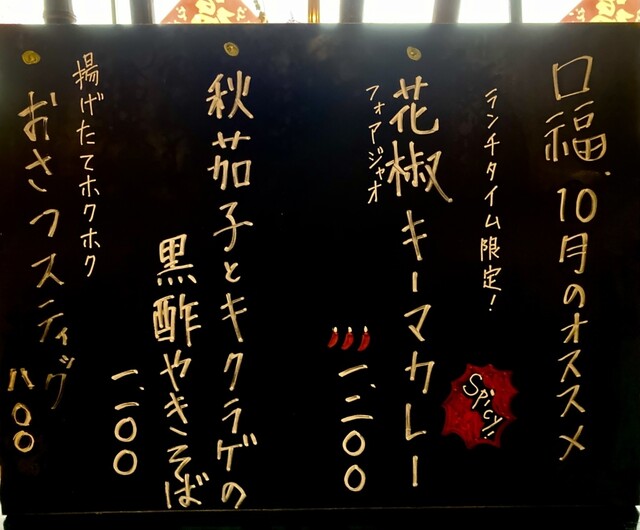 口福 10月のオススメ
ランチタイム限定!
Spicy!
花椒キーマカレー
フォアジャオ
一、二〇〇
秋茄子とキクラゲの
黒酢やきそば
一、二〇〇
揚げたてホクホク
おさつスティック
八〇〇